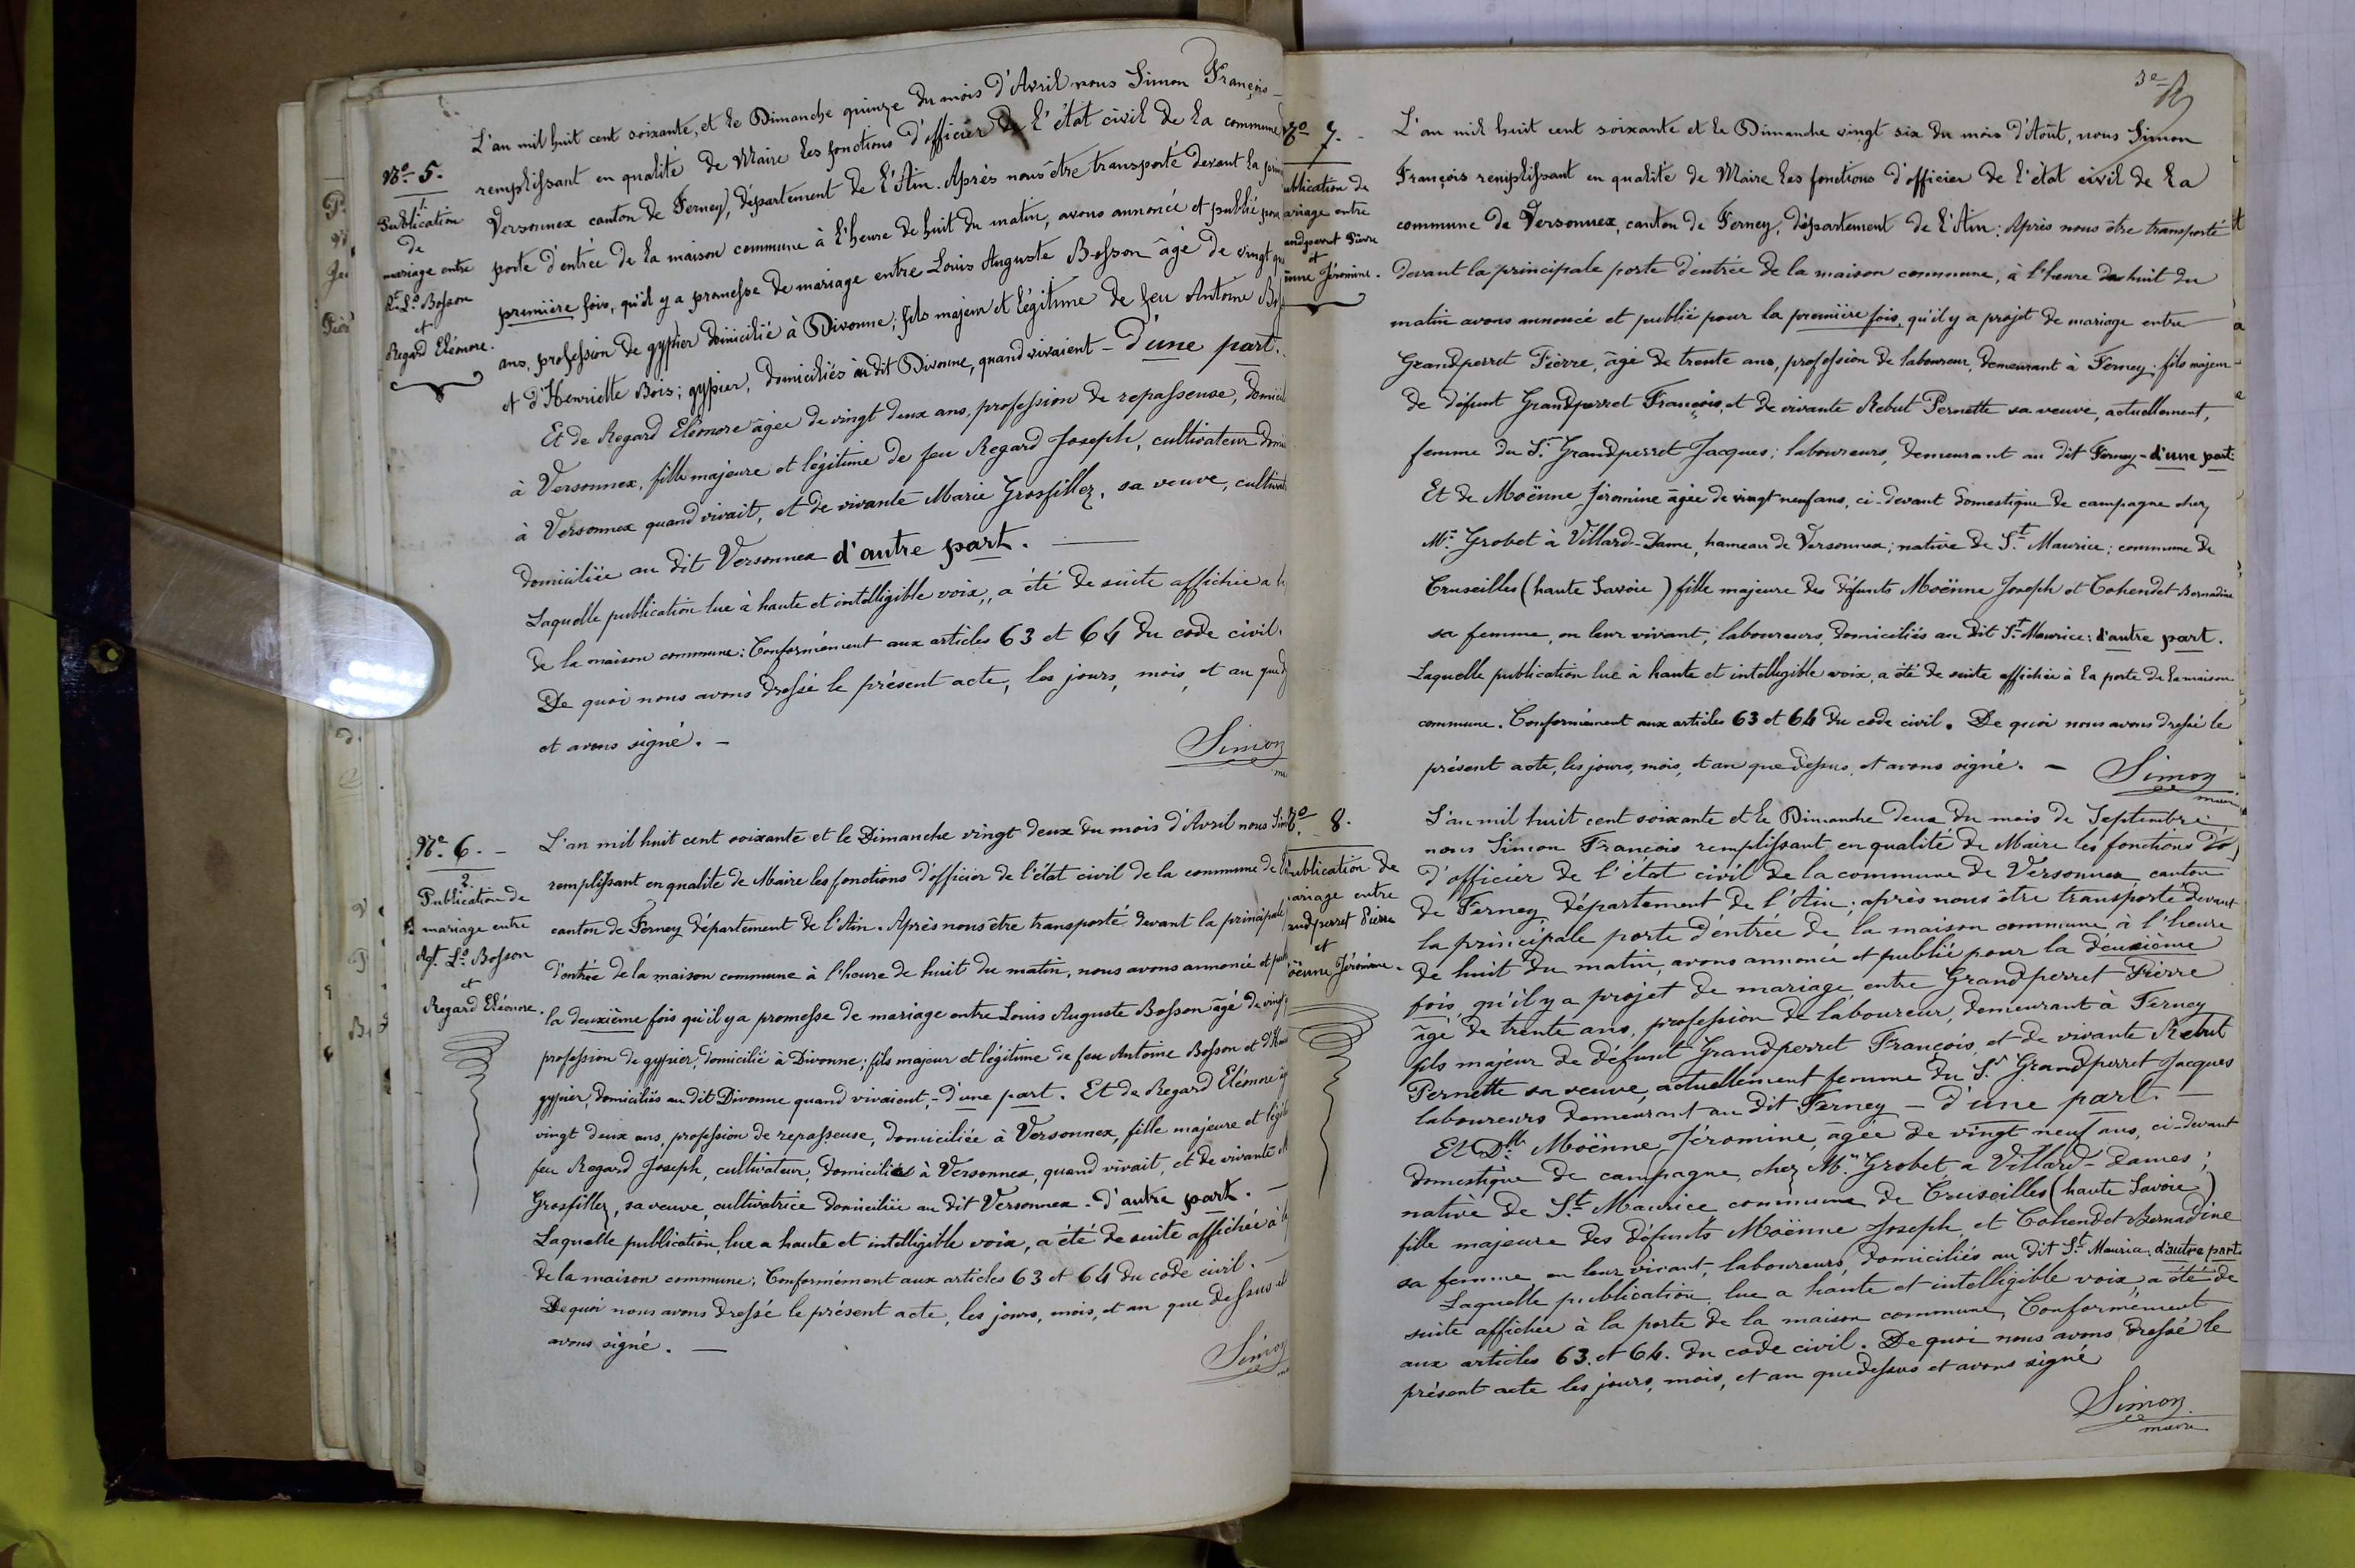 L'an mil huit cent soixante, et le Dimanche quinze du mois d'Avril nous Simon François
N.° 5.
remplissant en qualité de Maire les fonctions d'officier de l'état civil de la commune
1
Publication
de
mariage entre
L.s Bosson
et
Regard Eléonore.
Versonnex canton de Ferney, département de l'Ain. Après nous être transporté devant la
porte d'entrée de la maison commune à l'heure de huit du matin, avons annoncé et publié pour
première fois, qu'il y a promesse de mariage entre Louis Auguste Bosson âgé de vingt
ans, profession de gypier domicilié à Divonne; fils majeur et légitime de feu Antoine
et d'Henriette Bois; gypier, domiciliés au dit Divonne, quand vivaient – d'une part.
Et de Regard Eléonore âgée de vingt deux ans, profession de repasseuse,
à Versonnex, fille majeure et légitime de feu Regard Joseph, cultivateur
à Versonnex quand vivait, et de vivante Marie Grosfillez, sa veuve,
domiciliée au dit Versonnex d'autre part.
Laquelle publication lue à haute et intelligible voix, a été de suite affichée a
de la maison commune: Conformément aux articles 63 et 64 du code civil.
De quoi nous avons dressé le présent acte, les jours, mois, et an que
et avons signé. –
Simon
N.° 6. –
2.
Publication de
mariage entre
L.s Bosson
et
Regard Eléonore.
L'an mil huit cent soixante et le Dimanche vingt deux du mois d'Avril nous
remplissant en qualité de Maire les fonctions d'officier de l'état civil de la commune de
canton de Ferney département de l'Ain. Après nous être transporté devant la principale
d'entrée de la maison commune à l'heure de huit du matin, nous avons annoncé et
la deuxième fois qu'il y a promesse de mariage entre Louis Auguste Bosson âgé de
profession de gypier, domicilié à Divonne; fils majeur et légitime de feu Antoine Bosson et
gypier, domiciliés au dit Divonne quand vivaient, – d'une part. Et de Regard Eléonore
vingt deux ans, profession de repasseuse, domiciliée à Versonnex, fille majeure et
feu Regard Joseph, cultivateur, domicilié à Versonnex, quand vivait, et de vivante
Grosfillez, sa veuve, cultivatrice domiciliée au dit Versonnex – d'autre part. –
Laquelle publication, lue a haute et intelligible voix, a été de suite affichée à
de la maison commune; Conformément aux articles 63 et 64 du code civil. –
De quoi nous avons dressé le présent acte, les jours, mois, et an que dessus et
avons signé. –
Simon
3e
7.
ublication de
ariage entre
andperret Pierre
et
Jéromine.
L'an mil huit cent soixante et le Dimanche vingt six du mois d'Août, nous Simon
François remplissant en qualité de Maire les fonctions d'officier de l'état civil de la
commune de Versonnex, canton de Ferney, département de l'Ain: Après nous être transporté
devant la principale porte d'entrée de la maison commune, à l'heure de huit du
matin avons annoncé et publié pour la première fois, qu'il y a projet de mariage entre
Grandperret Pierre, âgé de trente ans, profession de laboureur, demeurant à Ferney; fils majeur
de défunt Grandperret François, et de vivante Rebut Pernette sa veuve, actuellement,
femme du S.r Grandperret Jacques; laboureurs, demeurant au dit Ferney – d'une part.
Et de Moënne Jéromine âgée de vingt neuf ans, ci-devant domestique de campagne chez
M.r Grobet à Villard-Dame, hameau de Versonnex; native de S.t Maurice; commune de
Cruseilles (haute Savoie) fille majeure des défunts Moënne Joseph et Cohendet Bernadine
sa femme, en leur vivant, laboureurs, domiciliés au dit S.t Maurice: d'autre part.
Laquelle publication lue à haute et intelligible voix, a été de suite affichée à la porte de la maison
commune. Conformément aux articles 63 et 64 du code civil. De quoi nous avons dressé le
présent acte, les jours, mois, et an que dessus, et avons signé. –
Simon
maire
8.
ublication de
ariage entre
andperret Pierre
et
oënne Jéromine.
L'an mil huit cent soixante et le Dimanche deux du mois de Septembre
nous Simon François remplissant en qualité de Maire les fonctions d'o
d'officier de l'état civil de la commune de Versonnex, canton
de Ferney, département de l'Ain; après nous être transporté devant
la principale porte d'entrée de la maison commune à l'heure
de huit du matin, avons annoncé et publié pour la deuxième
fois, qu'il y a projet de mariage entre Grandperret Pierre
âgé de trente ans, profession de laboureur, demeurant à Ferney
fils majeur de défunt Grandperret François, et de vivante Rebut
Pernette sa veuve, actuellement femme du S.r Grandperret Jacques
laboureurs demeurant au dit Ferney – d'une part. –
Et D.lle Moënne Jéromine, âgée de vingt neuf ans, ci-devant
domestique de campagne, chez M.r Grobet, a Villard-Dames;
native de S.t Maurice commune de Cruseilles (haute Savoie)
fille majeure des défunts Moënne Joseph, et Cohendet Bernadine
sa femme, en leur vivant, laboureurs, domiciliés au dit S.t Maurice: d'autre part.
Laquelle publication, lue a haute et intelligible voix, a été de
suite affichée à la porte de la maison commune, Conformément
aux articles 63. et 64. du code civil. De quoi nous avons dressé le
présent acte les jours, mois, et an que dessus et avons signé
Simon
maire